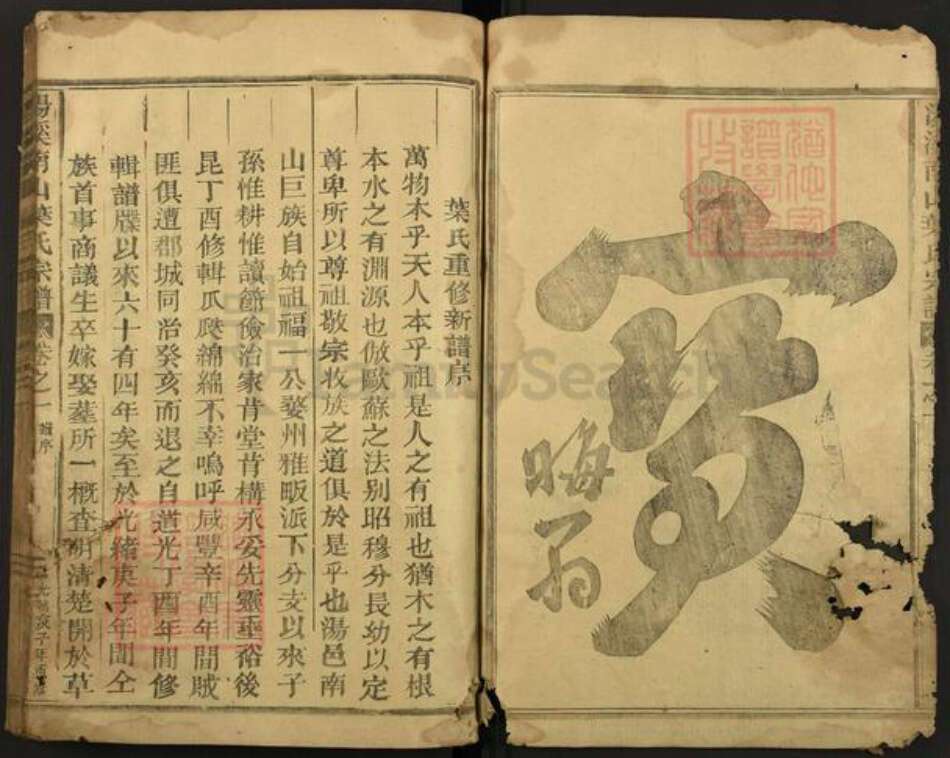 寅
晦翁
葉氏重修新譜序
萬物本乎天人本乎祖是人之有祖也猶木之有根
本水之有淵源也倣歐蘇之法别昭穆分長幼以定
尊卑所以尊祖敬宗收族之道俱於是乎也湯邑南
山巨族自始祖福一公婺州雅畈派下分支以來子
孫惟耕惟讀節儉治家肯堂肯構永妥先靈垂裕後
昆丁酉修輯瓜瓞綿綿不幸嗚呼咸豐辛酉年間賊
匪俱遭郡城同治癸亥而退之自道光丁酉年間修
輯譜牒以來六十有四年矣至於光緒庚子年間仝
族首事商議生卒嫁娶墓所一概查明清楚開於草
湯溪南山葉氏宗譜 卷之一 譜序
FamilySearch